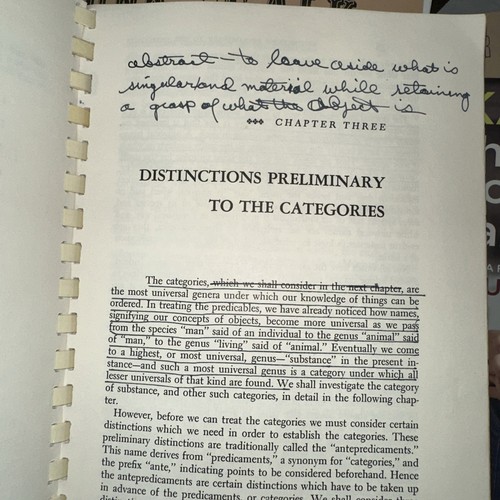 abstract - to leave aside what is
singular and material while retaining
a grasp of what the object is
*** CHAPTER THREE
DISTINCTIONS PRELIMINARY
TO THE CATEGORIES
The categories, which we shall consider in the next chapter, are
the most universal genera under which our knowledge of things can be
ordered. In treating the predicables, we have already noticed how names,
signifying our concepts of objects, become more universal as we pass
from the species "man" said of an individual to the genus "animal" said
of "man," to the genus "living" said of "animal." Eventually we come
to a highest, or most universal, genus—"substance" in the present in-
stance—and such a most universal genus is a category under which all
lesser universals of that kind are found. We shall investigate the category
of substance, and other such categories, in detail in the following chap-
ter.
However, before we can treat the categories we must consider certain
distinctions which we need in order to establish the categories. These
preliminary distinctions are traditionally called the "antepredicaments."
This name derives from "predicaments," a synonym for "categories," and
the prefix "ante," indicating points to be considered beforehand. Hence
the antepredicaments are certain distinctions which have to be taken up
in advance of the predicaments, or categories. We shall consider